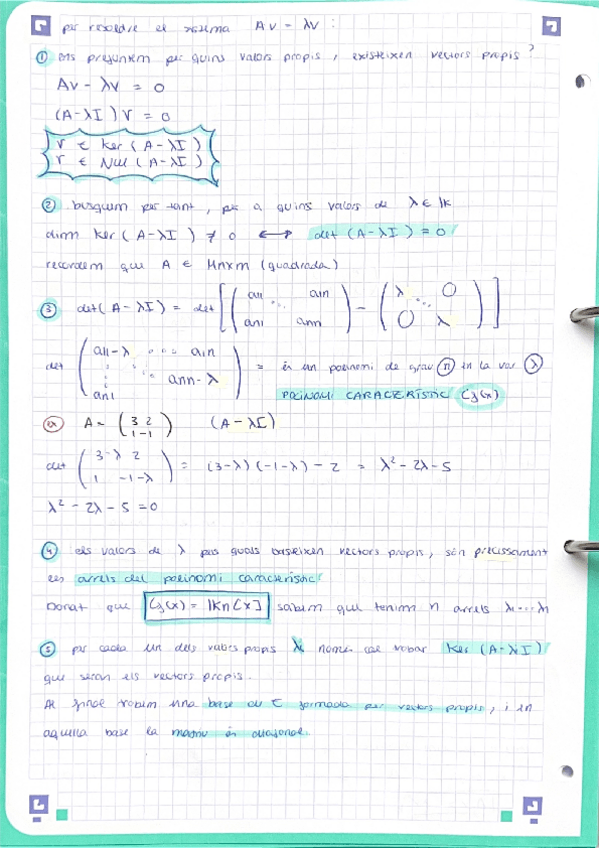 per resoldre el sistema Av = λv :
① ens preguntem per quins valors propis, existeixen vectors propis?
Av - λv = 0
(A-λI) v = 0
v ∈ Ker (A-λI)
v ∈ Nul (A-λI)
② busquem per tant, per a quins valors de λ ∈ IK
dim Ker (A-λI) ≠ 0 ⟷ det (A-λI) = 0
recordem que A ∈ Mnxm (quadrada)
③ det (A-λI) = det [ ( a11 ⋱ a1n
an1 ann ) - ( λ ⋱ 0
0 λ ) ]
det ( a11-λ ... a1n
⋮ ⋱ ann-λ
an1 ) = és un polinomi de grau ⓝ en la var λ
POLINOMI CARACTERÍSTIC Cg(x)
ex A = ( 3 2
1 -1 ) (A-λI)
det ( 3-λ 2
1 -1-λ ) = (3-λ)(-1-λ) - 2 = λ² - 2λ - 5
λ² - 2λ - 5 = 0
④ els valors de λ pels quals existeixen vectors propis, són precissament
les arrels del polinomi característic
Donat que Cg(x) = IKn[x] sabem que tenim n arrels λ1...λn
⑤ per cada un dels valors propis λi només cal trobar Ker (A-λiI)
que seran els vectors propis.
Al final trobem una base de E formada per vectors propis, i en
aquella base la matriu és diagonal.